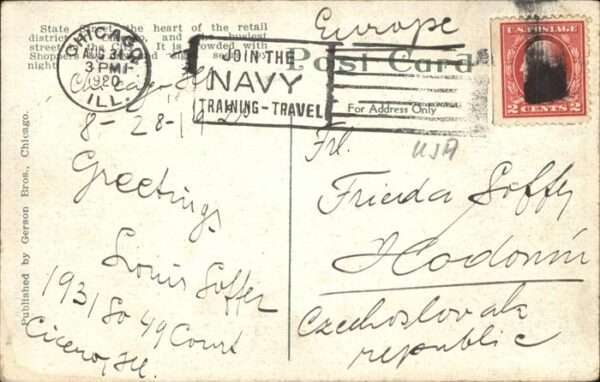 State Street, the heart of the retail
district of Chicago, and the busiest
street in the City. It is crowded with
Shoppers
night
CHICAGO
AUG 31
3 PM
1920
ILL.
JOIN THE
NAVY
TRAINING-TRAVEL
Europe
Post Card
For Address Only
U.S. POSTAGE
2 CENTS 2
Chicago Ill
8-28-1920
Greetings
Louis Soffer
1931 So 49 Court
Cicero, Ill.
Frl.
USA
Frieda Soffer
Hodonin
Czechoslovak
republic
Published by Gerson Bros., Chicago.